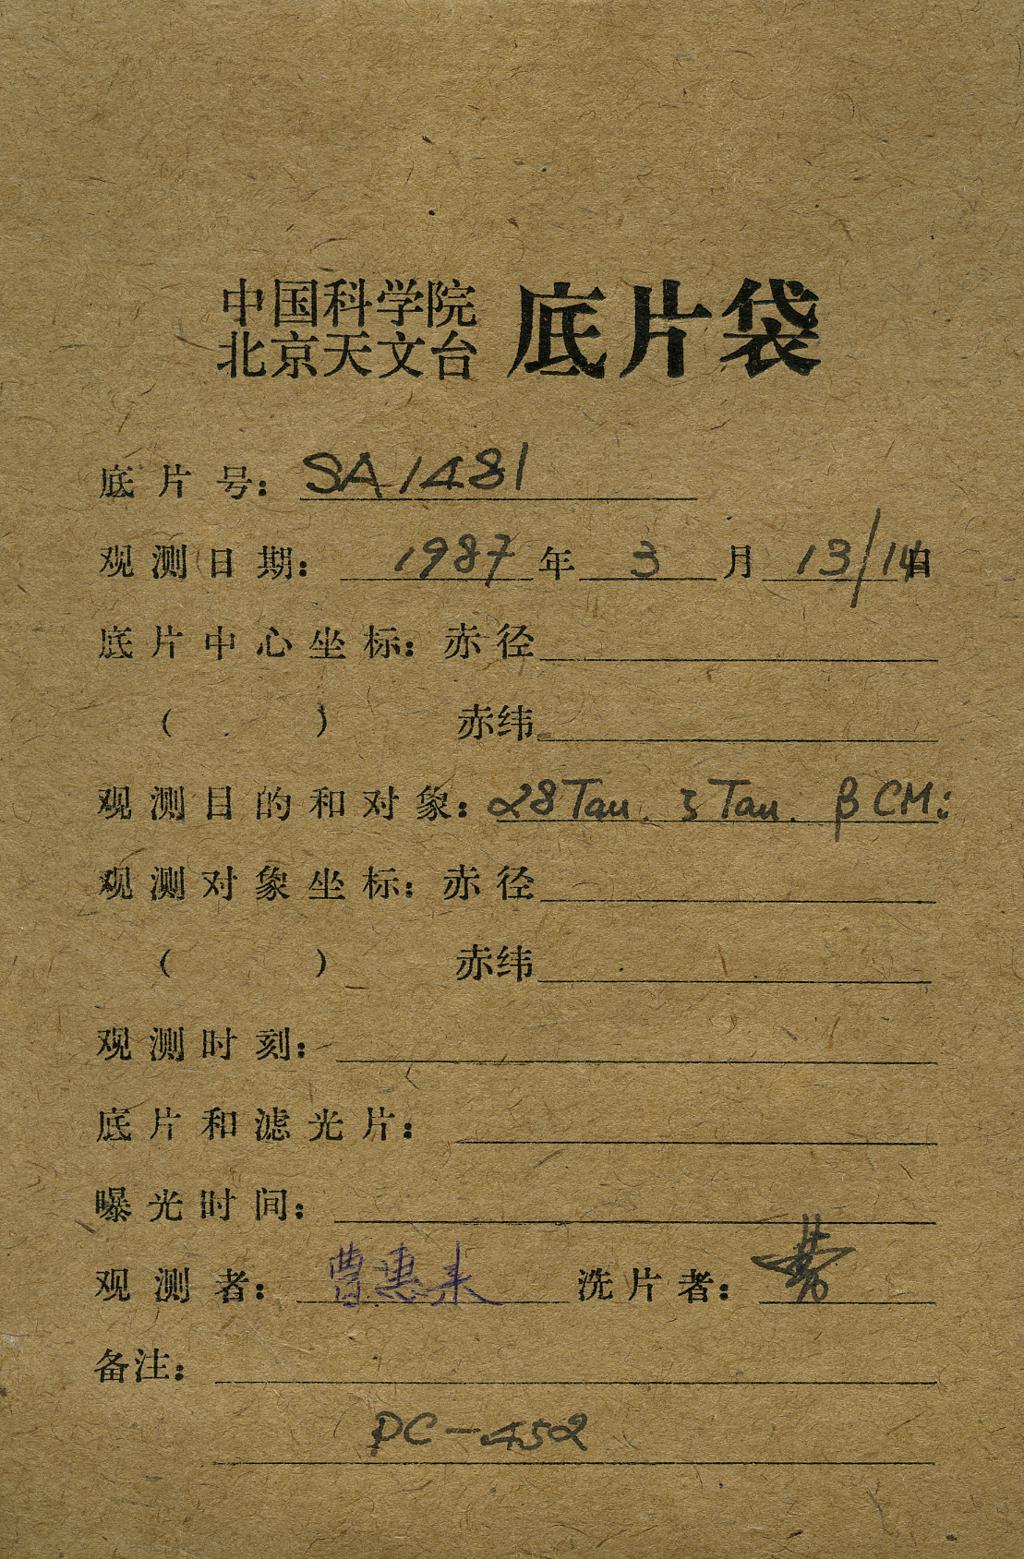 中国科学院
北京天文台 底片袋
底片号：SA1481
观测日期：1987年3月13/14日
底片中心坐标：赤径
（ ） 赤纬
观测目的和对象：28 Tau. ζ Tau. β CMi
观测对象坐标：赤径
（ ） 赤纬
观测时刻：
底片和滤光片：
曝光时间：
观测者：曹惠来 洗片者：
备注：
PC-452